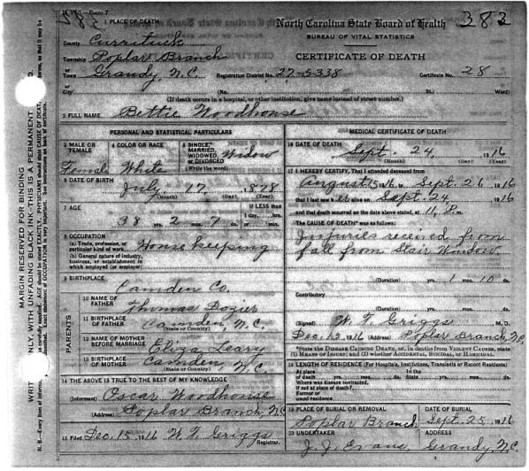 1 PLACE OF DEATH
North Carolina State Board of Health
382
BUREAU OF VITAL STATISTICS
County Currituck
CERTIFICATE OF DEATH
Township Poplar Branch
Town Grandy, N.C.
Registration District No. 27-5338
Certificate No. 28
or
City (No. St.; Ward)
(If death occurs in a hospital, or other institution, give name instead of street number.)
2 FULL NAME Bettie Woodhouse
PERSONAL AND STATISTICAL PARTICULARS
3 MALE OR FEMALE Female
4 COLOR OR RACE White
5 SINGLE, MARRIED, WIDOWED, OR DIVORCED (Write the word) Widow
6 DATE OF BIRTH July 17, 1878
(Month) (Day) (Year)
7 AGE 38 2 7
If LESS than
8 OCCUPATION
(a) Trade, profession, or particular kind of work House keeping
(b) General nature of industry, business, or establishment in which employed (or employer)
9 BIRTHPLACE Camden Co.
PARENTS
10 NAME OF FATHER Thomas Dozier
11 BIRTHPLACE OF FATHER Camden, N.C.
(State or Country)
12 NAME OF MOTHER BEFORE MARRIAGE Eliza Leary
13 BIRTHPLACE OF MOTHER Camden, N.C.
(State or Country)
14 THE ABOVE IS TRUE TO THE BEST OF MY KNOWLEDGE
(Informant) Oscar Woodhouse
(Address) Poplar Branch, N.C.
15 Filed Dec. 15, 1916 W. T. Griggs
Registrar.
MEDICAL CERTIFICATE OF DEATH
16 DATE OF DEATH
Sept. 24, 1916
(Month) (Day) (Year)
17 I HEREBY CERTIFY, That I attended deceased from
August 15, 1916, Sept. 26 1916
that I last saw her alive on Sept. 24 1916
and that death occurred on the date above stated, at 11, P.m.
The CAUSE OF DEATH* was as follows:
Injuries received from
fall from Stair Window.
(Duration) yrs. 1 mos. 10 ds.
Contributory
(Duration) yrs. mos. ds.
(Signed) W. T. Griggs M. D.
Dec. 13, 1916 (Address) Poplar Branch, N.C.
*State the DISEASE CAUSING DEATH, or, in deaths from VIOLENT CAUSES, state (1) MEANS OF INJURY; and (2) whether ACCIDENTAL, SUICIDAL, or HOMICIDAL.
18 LENGTH OF RESIDENCE (For Hospitals, Institutions, Transients or Recent Residents)
Where was disease contracted,
if not at place of death?
Former or
usual residence
19 PLACE OF BURIAL OR REMOVAL
DATE OF BURIAL
Poplar Branch Sept. 25, 1916
20 UNDERTAKER
ADDRESS
J. J. Evans, Grandy, N.C.
MARGIN RESERVED FOR BINDING
UNFADING BLACK INK. THIS IS A PERMANENT